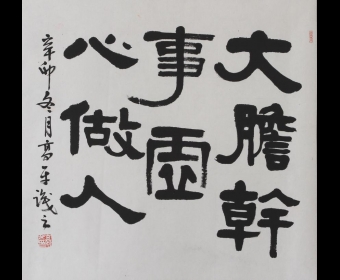 大膽幹
事虛
心做人
辛卯冬月高平識之